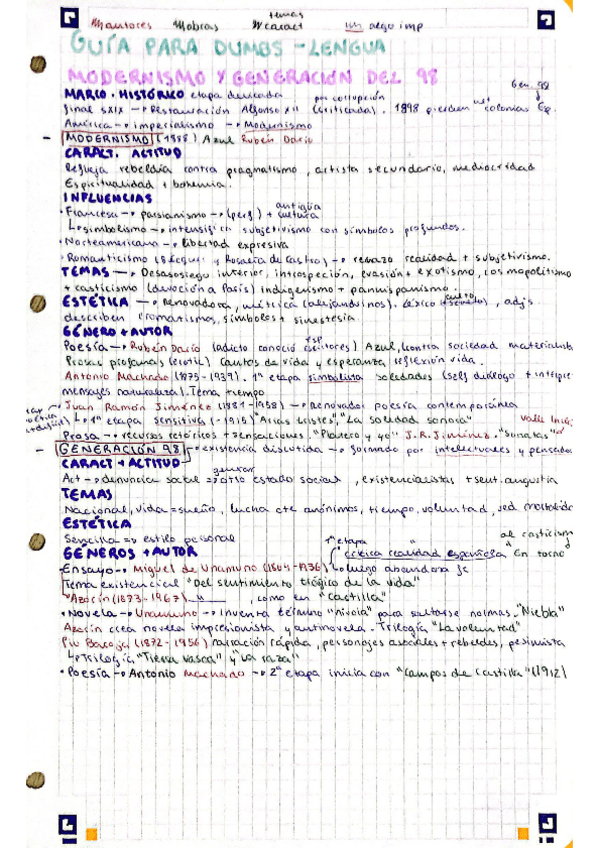 temas
M autores M obras M caract un algo imp
GUÍA PARA DUMBS - LENGUA
MODERNISMO Y GENERACIÓN DEL 98
Gen. 98
MARCO HISTÓRICO etapa delicada por corrupción
final SXIX → Restauración Alfonso XII (criticada). 1898 pierden colonias Esp.
América → imperialismo → Modernismo
- MODERNISMO (1888) Azul Rubén Darío
CARACT. ACTITUD
Refleja rebeldía contra pragmatismo, artista secundario, mediocridad
Espiritualidad + bohemia.
INFLUENCIAS
• Francesa → parsianismo → (perf) + cultura antigüa
↳ simbolismo → intensifica subjetivismo con símbolos profundos.
• Norteamericana → libertad expresiva
• Romanticismo (Bécquer y Rosalía de Castro) → rechazo realidad + subjetivismo.
TEMAS → Desasosiego interior, introspeción, evasión + exotismo, cosmopolitismo
+ casticismo (devoción a París) indigenismo + panhispanismo.
ESTÉTICA → Renovadora, métrica (alejandrinos). Léxico culto, adjs
describen cromatismos, símbolos + sinestesia.
GÉNERO + AUTOR
Poesía → Rubén Darío (adicto conoció escritores esp) Azul, (contra sociedad materialista
Prosas profanas (erotil) Cantos de vida y esperanza reflexión vida.
Antonio Machado (1875-1939). 1ª etapa simbolista soledades (self diálogo + interpre
mensajes naturaleza). Tema tiempo
Juan Ramón Jiménez (1881-1958) → Renovador poesía contemporánea
↳ 1ª etapa sensitiva (-1915) "Arias tristes", "La soledad sonora" Valle Inclán
Prosa → recursos retóricos + sensaciones. "Platero y yo" J.R. Jiménez. "Sonatas"
- GENERACIÓN 98 • existencia discutida → formado por intelectuales y pensado
CARACT + ACTITUD
Act → denuncia social → otro estado social, existencialistas + sent. angustia
TEMAS
Nacional, vida = sueño, lucha cte anónimos, tiempo, voluntad, sed
ESTÉTICA
Sencilla → estilo personal 1ª etapa al casticism
GÉNEROS + AUTOR crítica realidad española en torno
• Ensayo → Miguel de Unamuno (1864-1936) ↳ luego abandona fe
Tema existencial "Del sentimiento trágico de la vida"
"Azorín (1873-1967) " , como en "Castilla"
• Novela → Unamuno → inventa término "nivola" para saltarse normas. "Niebla"
Azorín crea novela impresionista y antinovela. Trilogía "La voluntad"
Pío Baroja (1872-1956) narración rápida, personajes asociales + rebeldes, pesimista
↳ Trilogía "Tierra vasca" y "La raza"
• Poesía → Antonio Machado → 2ª etapa inicia con "Campos de Castilla" (1912)